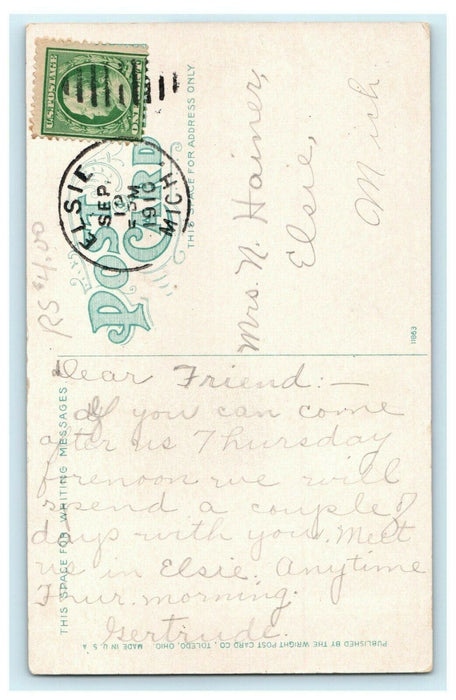 U.S. POSTAGE
ELSIE
SEP.
1910
MICH.
POST CARD
THIS SPACE FOR ADDRESS ONLY
Mrs. N. Hainer,
Elsie,
Mich.
11863
RS $4.00
THIS SPACE FOR WRITING MESSAGES
Dear Friend:—
If you can come
after us Thursday
forenoon we will
spend a couple of
days with you. Meet
us in Elsie. Anytime
Thur. morning.
Gertrude.
PUBLISHED BY THE WRIGHT POST CARD CO., TOLEDO, OHIO. MADE IN U.S.A